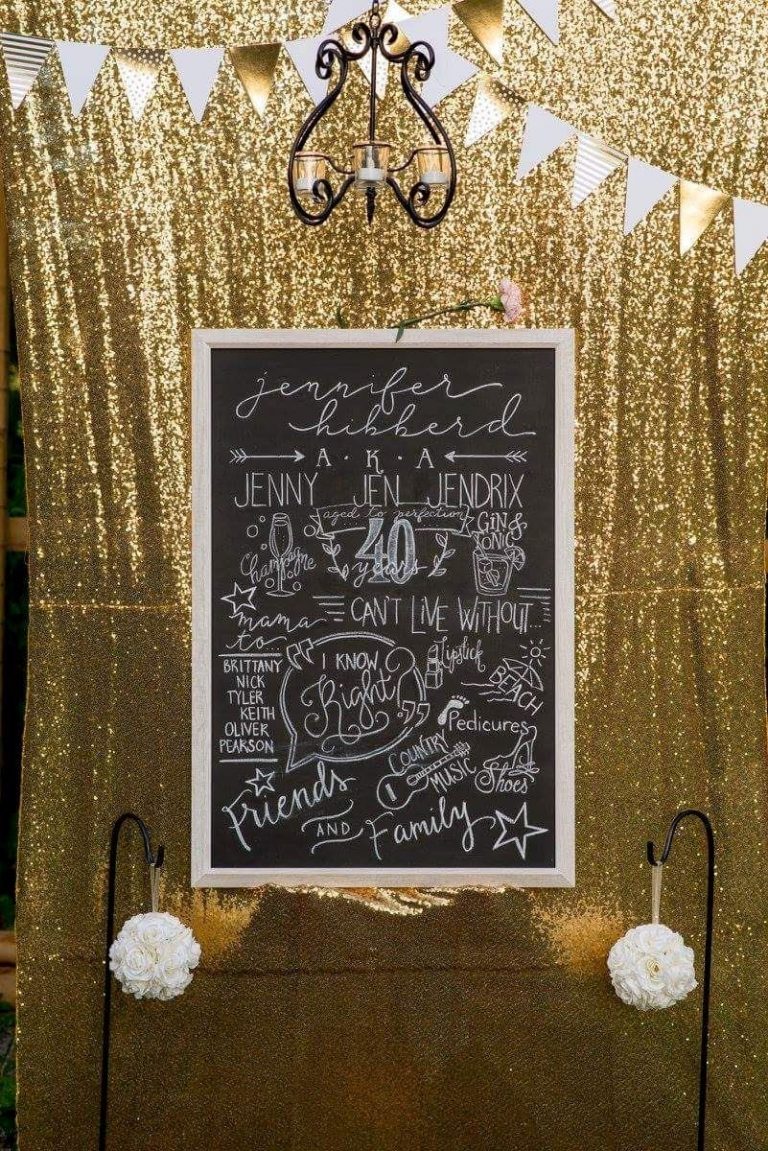 jennifer
hibberd
A · K · A
JENNY JEN JENDRIX
aged to perfection
40
years
Champagne
GIN &
TONIC
mama
to...
CAN'T LIVE WITHOUT...
BRITTANY
NICK
TYLER
KEITH
OLIVER
PEARSON
"I KNOW,
Right?"
Lipstick
BEACH
Pedicures
COUNTRY
MUSIC
Shoes
Friends
AND
Family